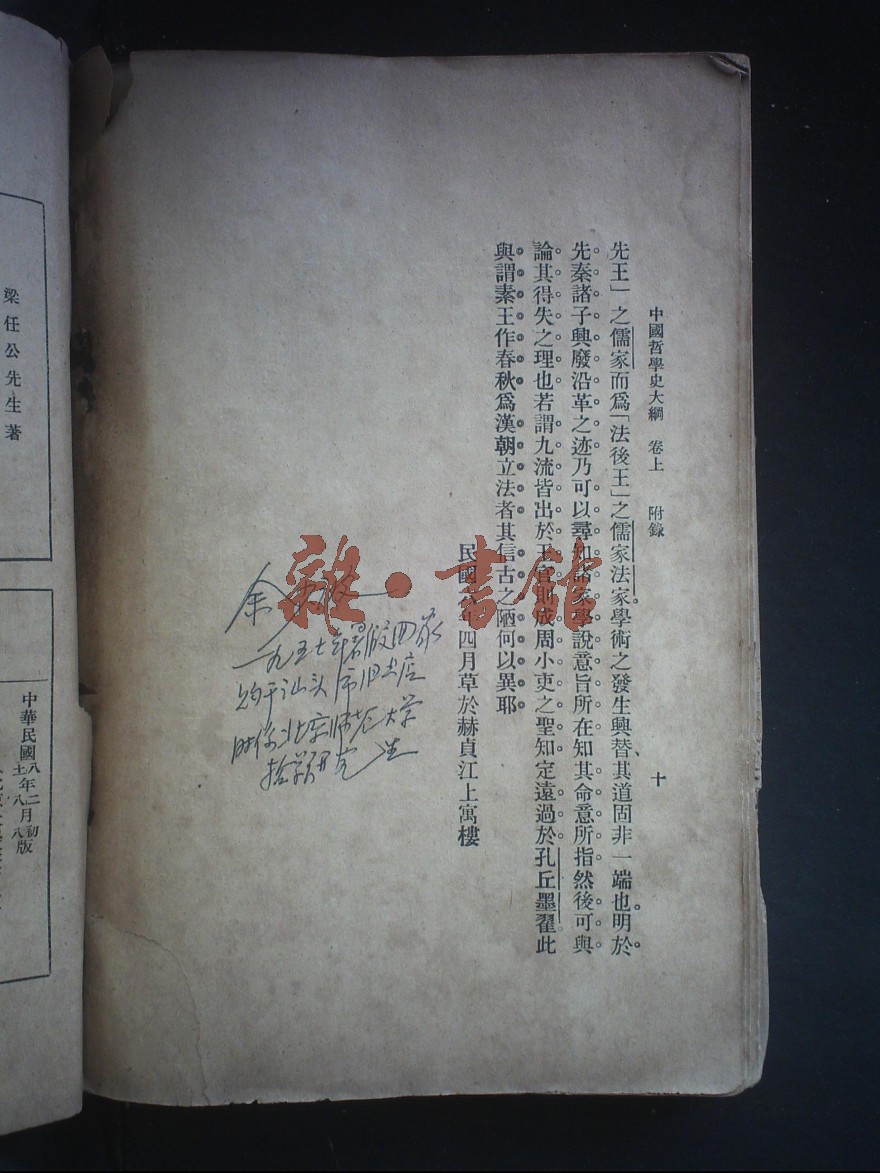 中國哲學史大綱 卷上 附錄 十
先王」之儒家而爲「法後王」之儒家法家學術之發生興替、其道固非一端也。明於
先秦諸子興廢沿革之迹乃可以尋知諸家學說意旨所在知其命意所指然後可與
論其得失之理也若謂九流皆出於王官則成周小吏之聖知定遠過於孔丘墨翟此
與謂素王作春秋爲漢朝立法者其信古之陋何以異耶
民國六年四月草於赫貞江上寓樓
雜·書館
余
一九五七年暑假回家
购于汕头市旧书店
时系北京师范大学
哲学研究生
梁任公先生著
中華民國八年二月初版